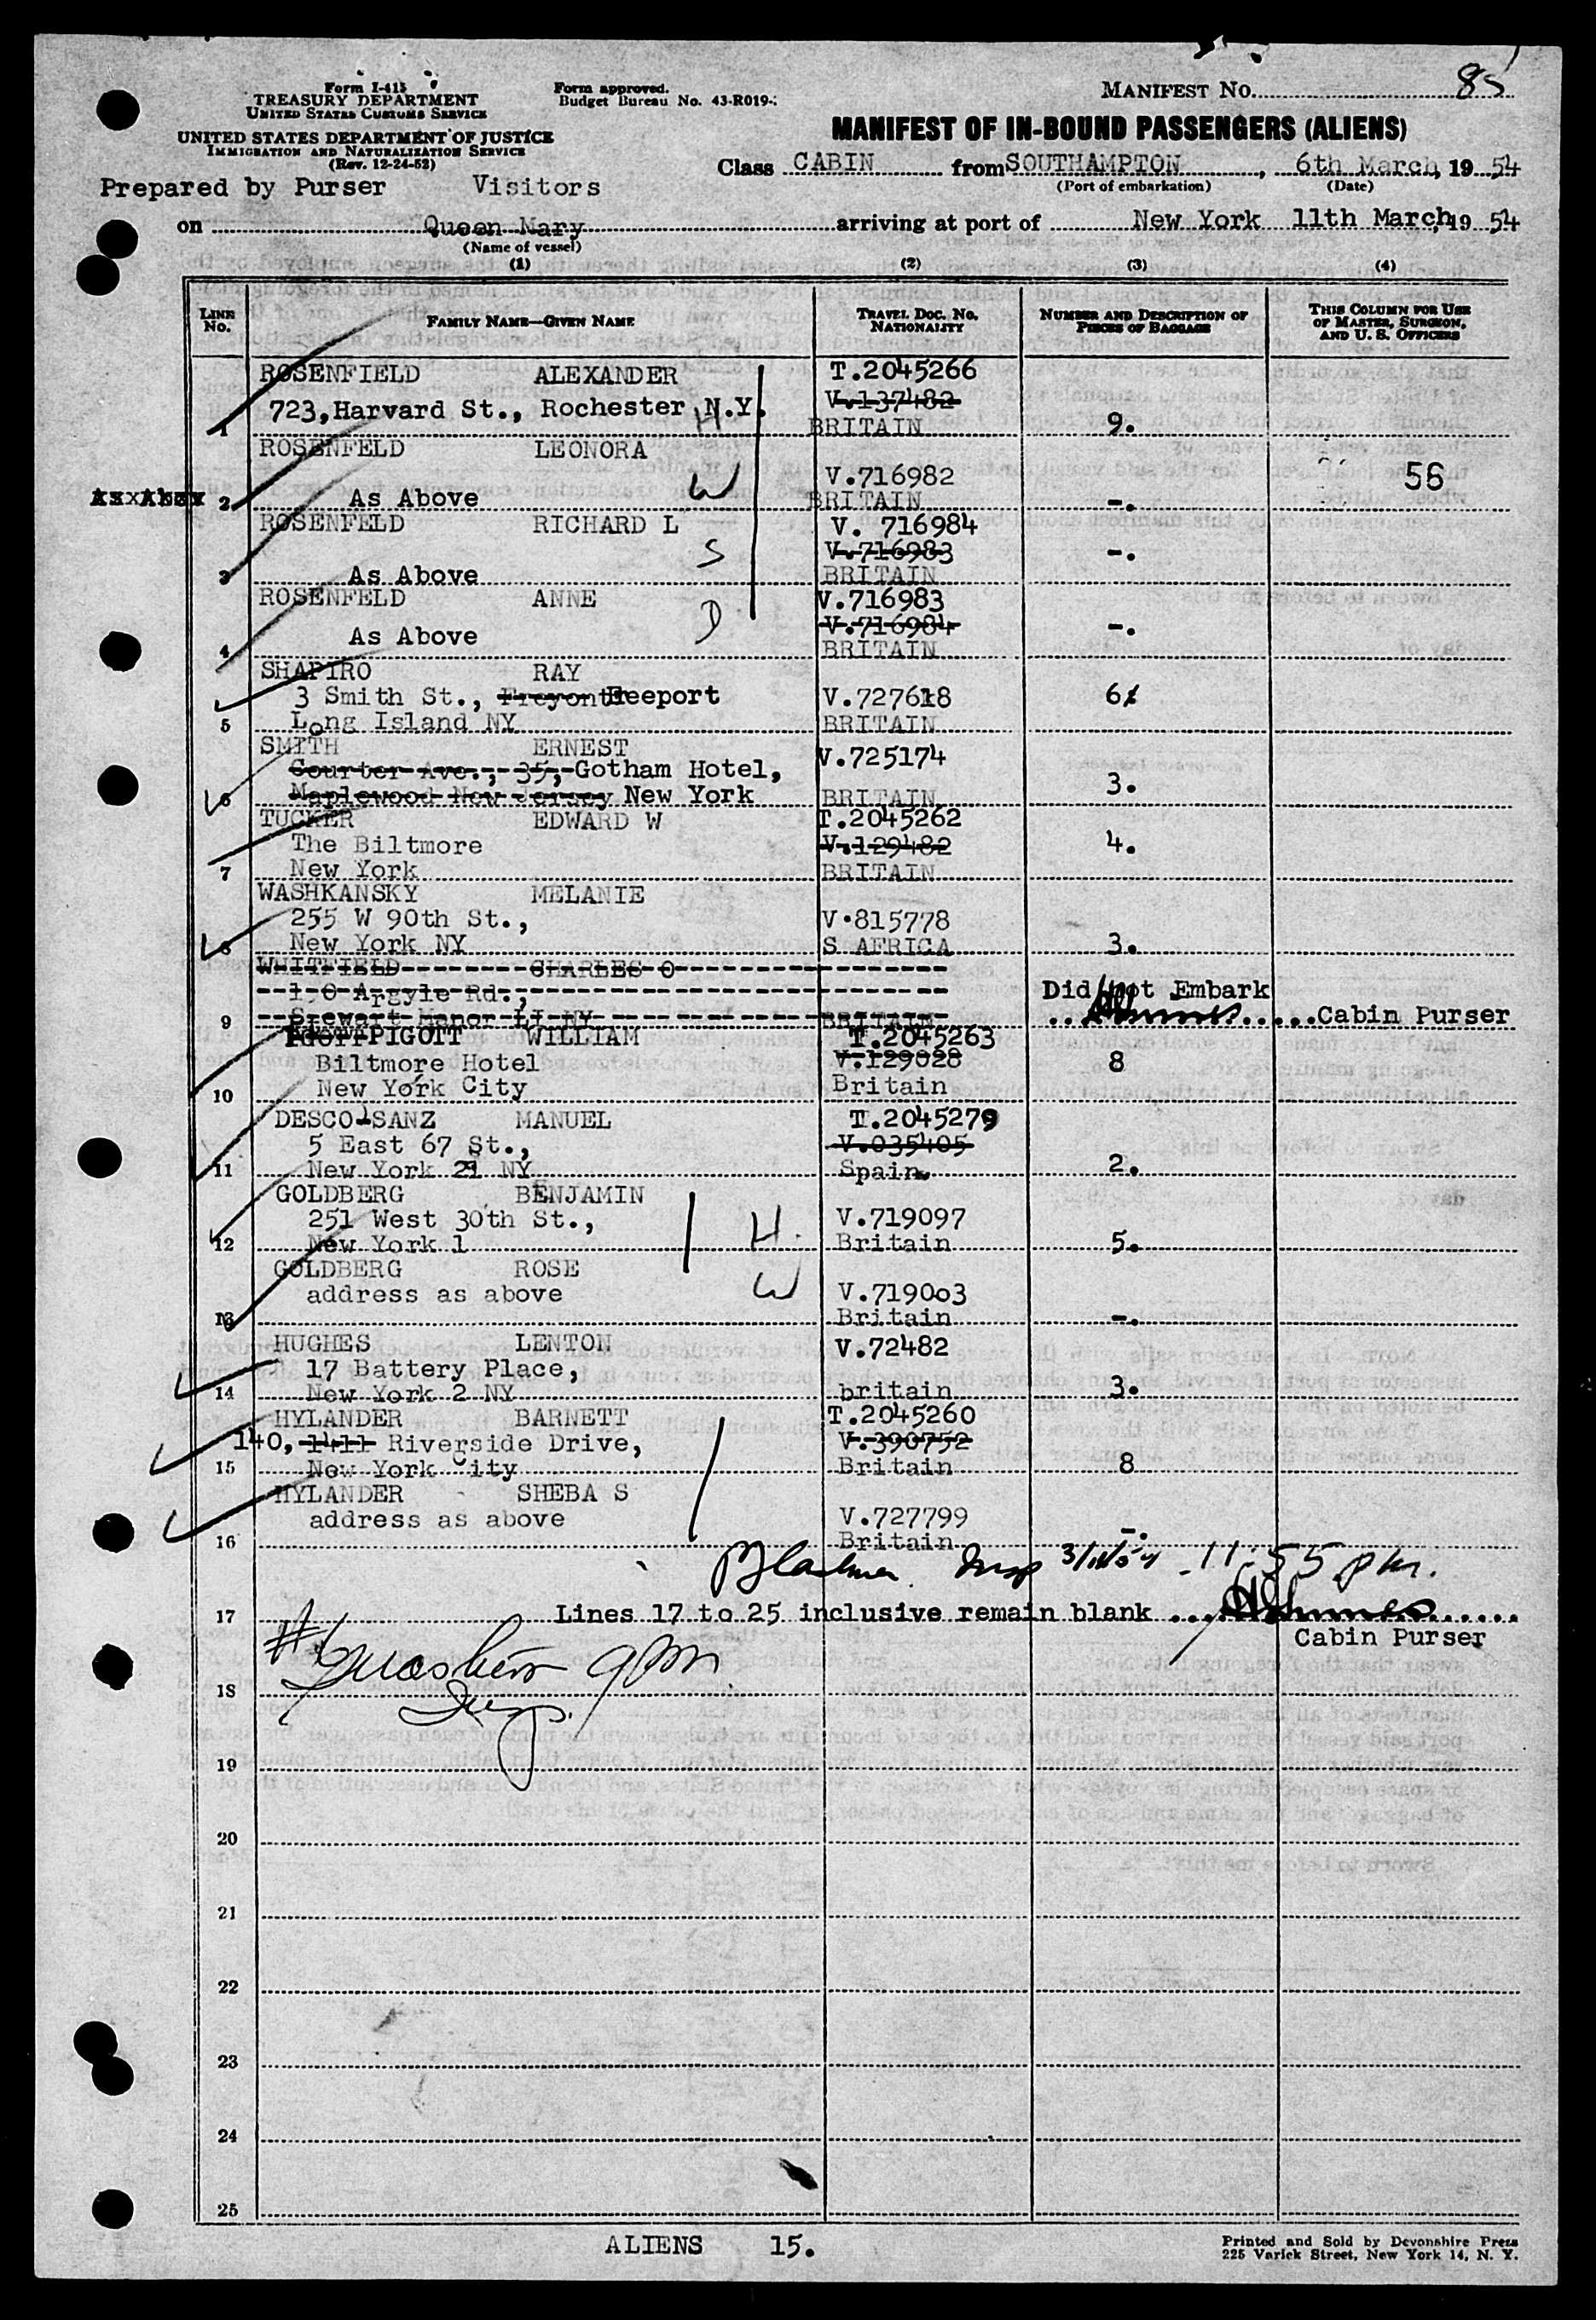 Form I-415
TREASURY DEPARTMENT
UNITED STATES CUSTOMS SERVICE
UNITED STATES DEPARTMENT OF JUSTICE
IMMIGRATION AND NATURALIZATION SERVICE
(Rev. 12-24-52)
Form approved.
Budget Bureau No. 43-R019-
MANIFEST NO. 85
MANIFEST OF IN-BOUND PASSENGERS (ALIENS)
Class CABIN from SOUTHAMPTON, 6th March, 19 54
(Port of embarkation) (Date)
Prepared by Purser Visitors
on Queen Mary arriving at port of New York 11th March, 19 54
(Name of vessel)
(1) (2) (3) (4)
LINE NO. FAMILY NAME—GIVEN NAME TRAVEL DOC. NO. NATIONALITY NUMBER AND DESCRIPTION OF PIECES OF BAGGAGE THIS COLUMN FOR USE OF MASTER, SURGEON, AND U. S. OFFICERS
ROSENFIELD ALEXANDER T.2045266
723, Harvard St., Rochester N.Y. V.137482
1 H BRITAIN 9.
ROSENFELD LEONORA
W V.716982 56
2 As Above BRITAIN -.
ROSENFELD RICHARD L V. 716984
S V.716983 -.
3 As Above BRITAIN
ROSENFELD ANNE V.716983
As Above D V.716984 -.
4 BRITAIN
SHAPIRO RAY
3 Smith St., Freeport V.727618 6
5 Long Island NY BRITAIN
SMITH ERNEST V.725174
Courter Ave., 35, Gotham Hotel,
6 Maplewood New Jersey New York BRITAIN 3.
TUCKER EDWARD W T.2045262
The Biltmore V.129482 4.
7 New York BRITAIN
WASHKANSKY MELANIE
255 W 90th St., V.815778
8 New York NY S AFRICA 3.
WHITFIELD CHARLES O
Argyle Rd., Did not Embark
9 Stewart Manor LI NY BRITAIN Cabin Purser
PIGOTT WILLIAM T.2045263
Biltmore Hotel V.129028 8
10 New York City Britain
DESCO-SANZ MANUEL T.2045279
5 East 67 St., V.035405
11 New York 21 NY Spain. 2.
GOLDBERG BENJAMIN
251 West 30th St., H. V.719097
12 New York 1 Britain 5.
GOLDBERG ROSE W
address as above V.719003
13 Britain -.
HUGHES LENTON V.72482
17 Battery Place,
14 New York 2 NY britain 3.
HYLANDER BARNETT T.2045260
140, 1411 Riverside Drive, V.390752
15 New York City Britain 8
HYLANDER - SHEBA S
address as above V.727799
16 Britain -.
Insp 3/11/54 - 11:55 pm.
17 Lines 17 to 25 inclusive remain blank
Cabin Purser
18
19
20
21
22
23
24
25
ALIENS 15.
Printed and Sold by Devonshire Press
225 Varick Street, New York 14, N. Y.